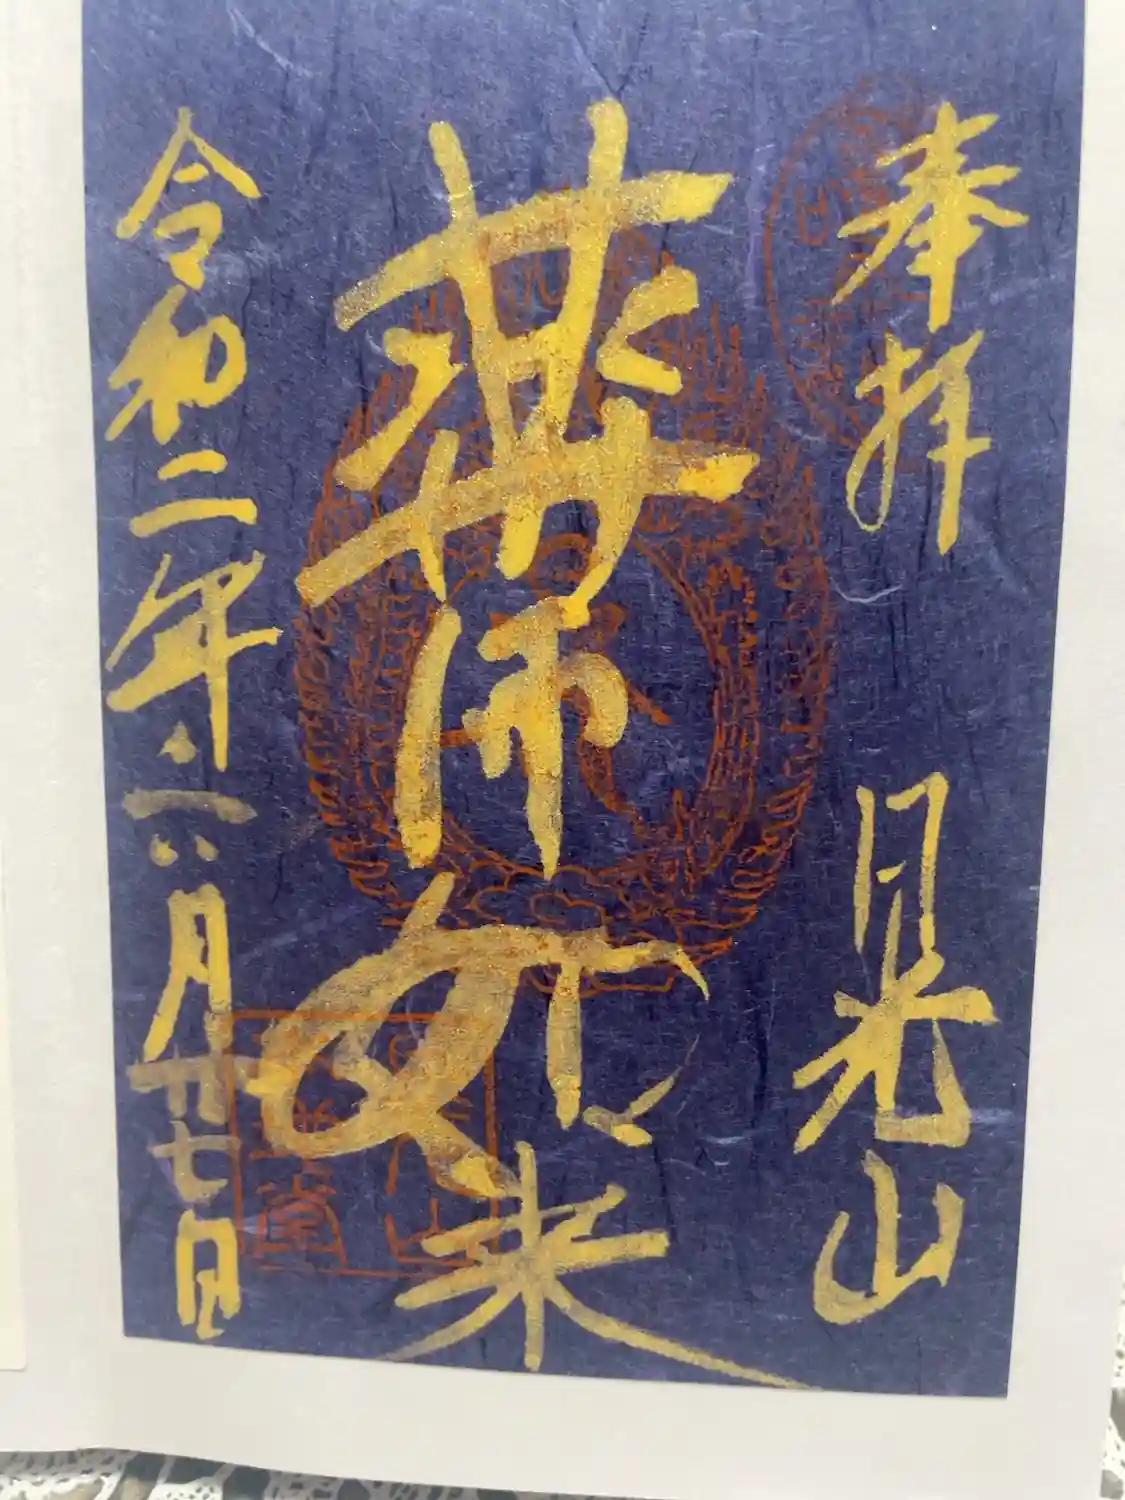 奉拝 日光山
薬師如来
令和二年六月廿七日